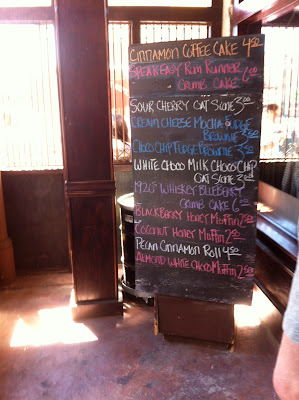 CINNAMON COFFEE CAKE 4.50
SPEAKEASY RUM RUNNER
CRUMB CAKE
SOUR CHERRY OAT SCONE 3.00
CREAM CHEESE MOCHA FUDGE
BROWNIE
CHOCO CHIP FUDGE BROWNIE
WHITE CHOCO MILK CHOCO CHIP
OAT SCONE
1920S WHISKEY BLUEBERRY
CRUMB CAKE
BLACKBERRY HONEY MUFFIN
COCONUT HONEY MUFFIN 2.50
PECAN CINNAMON ROLL 4.50
ALMOND WHITE CHOCO MUFFIN 2.50